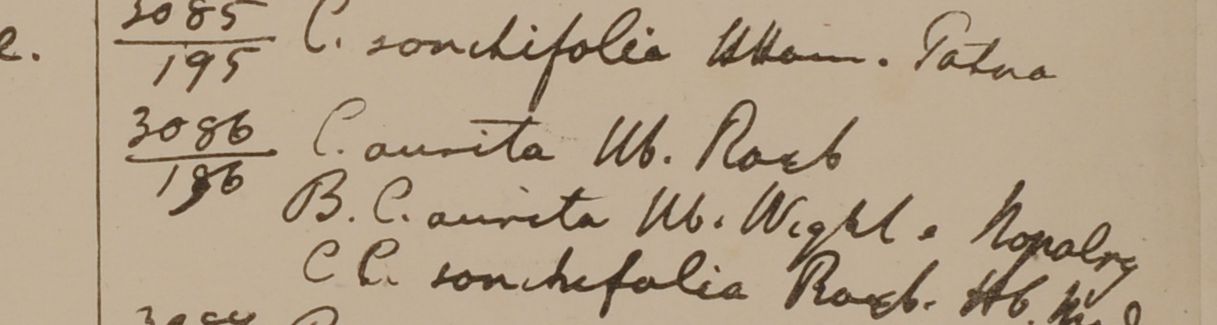 e. 3085 C. sonchifolia HHam. Patna
195
3086 C. aurita Hb. Roxb
196
B. C. aurita Hb. Wight e Nopalry
C C. sonchifolia Roxb. Hb.